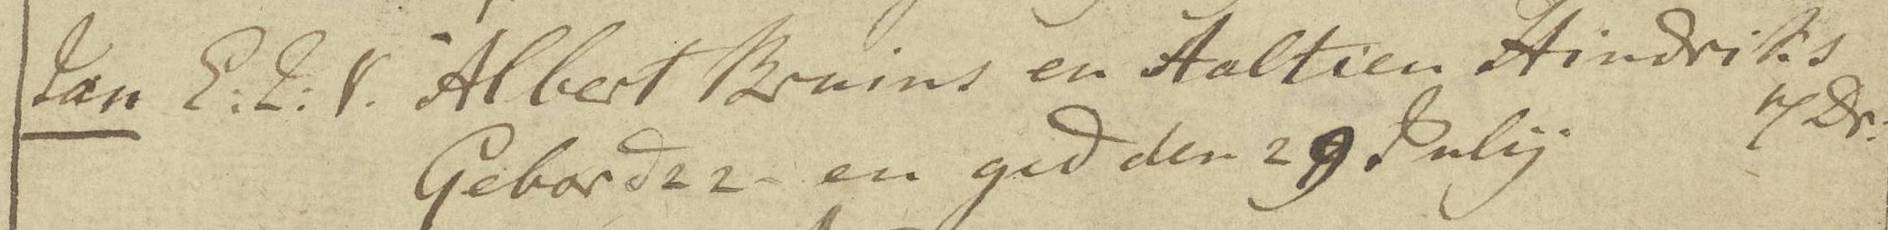 Jan E: Z: V. Albert Bruins en Aaltien Hindriks
Gebor d 22 - en ged den 29 Julij